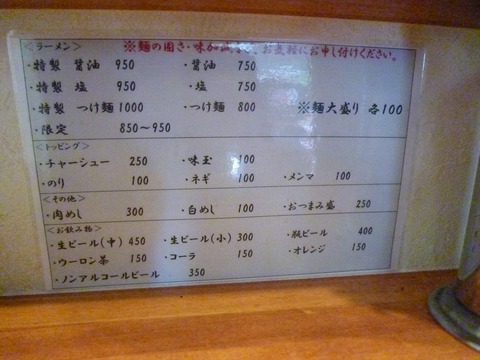 <ラーメン> ※麺の固さ・味加減など、お気軽にお申し付けください。
・特製 醤油 950 ・醤油 750
・特製 塩 950 ・塩 750
・特製 つけ麺 1000 ・つけ麺 800 ※麺大盛り 各100
・限定 850～950
<トッピング>
・チャーシュー 250 ・味玉 100
・のり 100 ・ネギ 100 ・メンマ 100
<その他>
・肉めし 300 ・白めし 100 ・おつまみ盛 250
<お飲み物>
・生ビール(中) 450 ・生ビール(小) 300 ・瓶ビール 400
・ウーロン茶 150 ・コーラ 150 ・オレンジ 150
・ノンアルコールビール 350